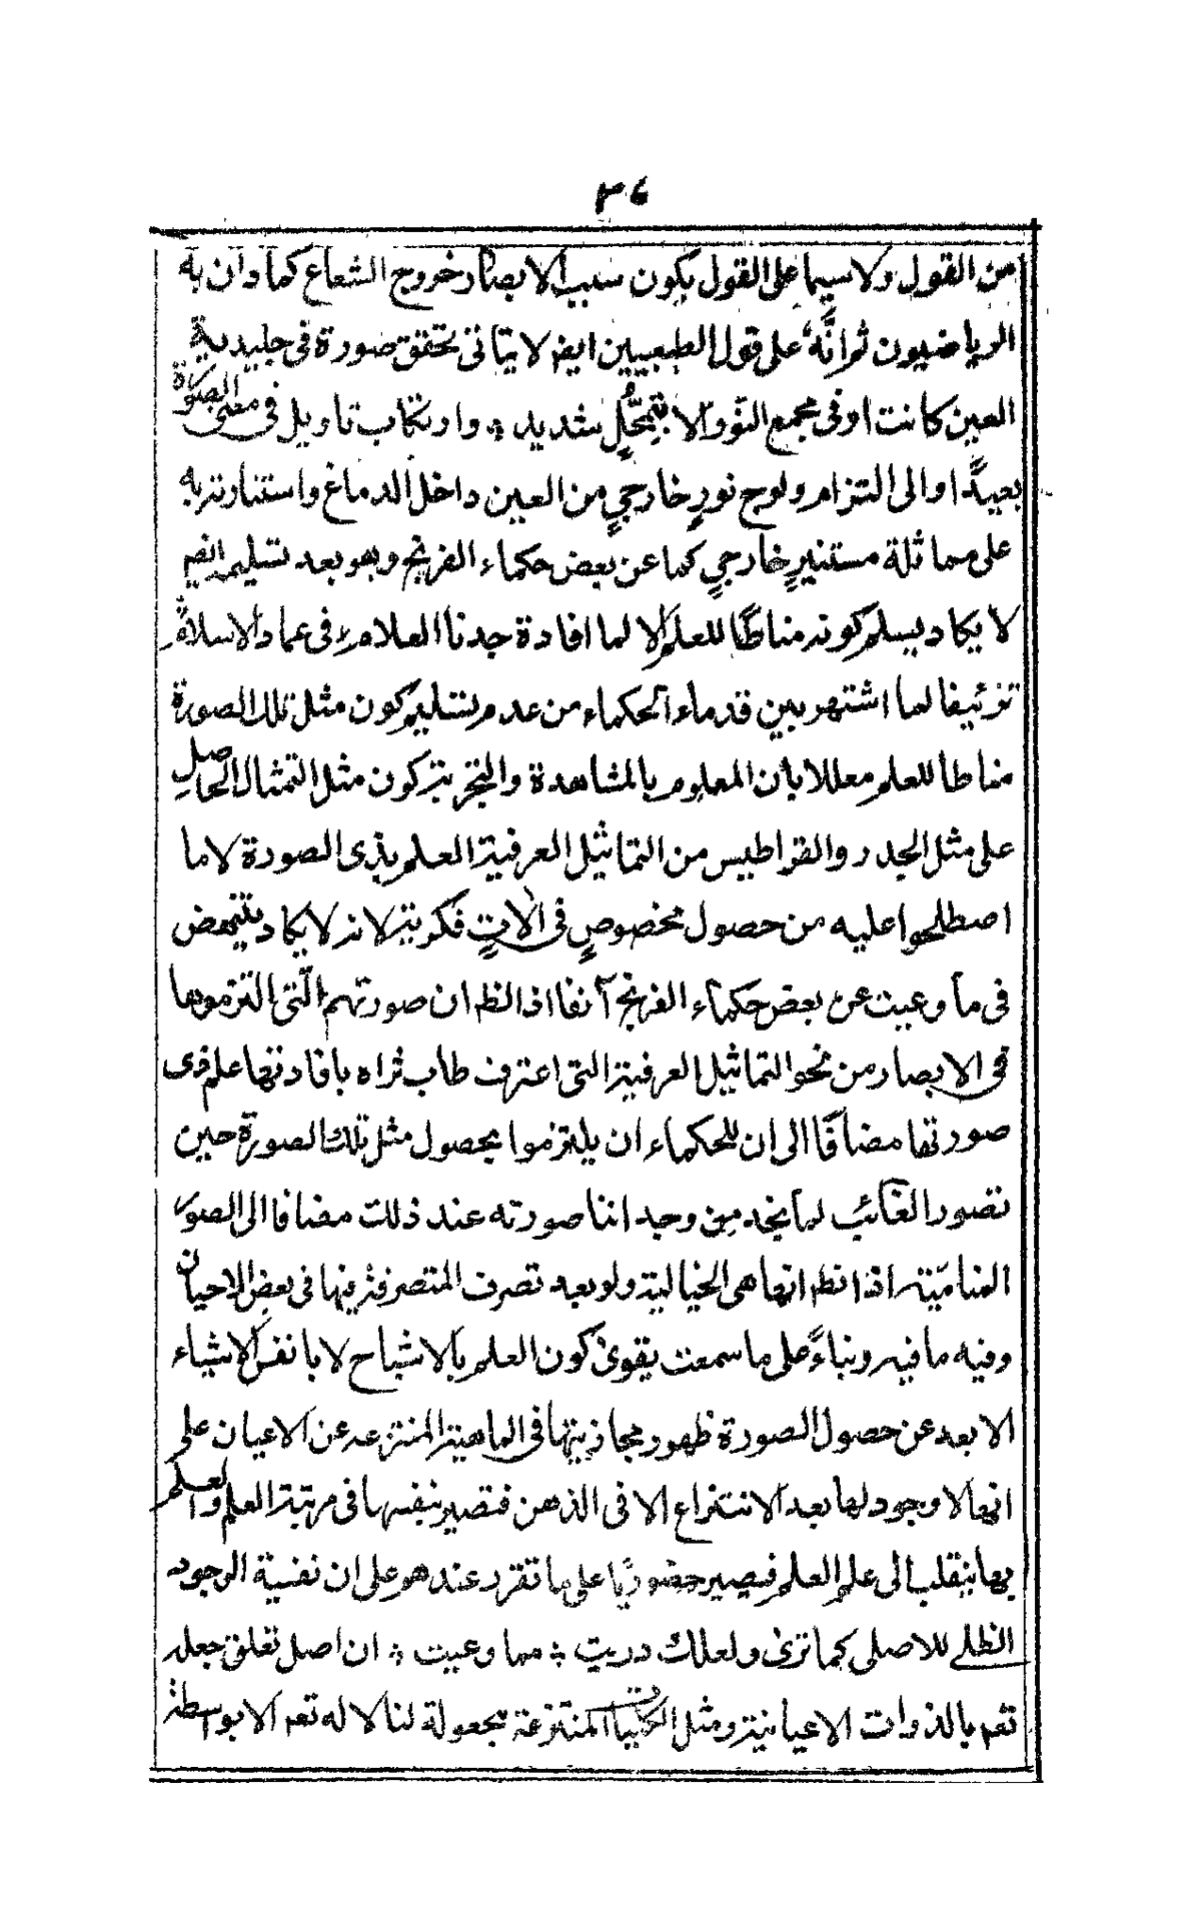 ٣٤
من القول ولا سيما على القول بكون سبب الابصار خروج الشعاع كما دان به
الرياضيون ثم انَّه على قول الطبعيين ايضا لا يتاتى تحقق صورة فى جليدية
العين كانت او فى مجمع النور الا بتمحُّلٍ شديد ؞ وارتكاب تاويل فى معنى الصورة
بعيدًا او الى التزام ولوج نورٍ خارجيٍ من العين داخل الدماغ واستنارته به
على مماثلة مستنيرٍ خارجيٍ كما عن بعض حكماء الفرنج وهو بعد تسليمه ايضا
لا يكاد يسلم كونه مناطًا للعلم الا لما افادة جدنا العلامة فى عماد الاسلام
تزئيفا لما اشتهر بين قدماء الحكماء من عدم تسليم كون مثل تلك الصورة
مناطا للعلم معللا بان المعلوم بالمشاهدة والتجربة كون مثل التمثال الحاصل
على مثل الجدر والقراطيس من التماثيل العرفية العلم بذى الصورة لا ما
اصطلحوا عليه من حصول مخصوصٍ فى الاتٍ فكرية لانه لا يكاد يتمحض
فى ما وعيت عن بعض حكماء الفرنج آنفا اذ الظ ان صورتهم الّتى التزموها
فى الابصار من نحو التماثيل العرفية التى اعترف طاب ثراه بافادتها علم ذى
صورتها مضافًا الى ان للحكماء ان يلتزموا بحصول مثل تلك الصورة حين
تصور الغائب لما نجد من وجداننا صورته عند ذلك مضافا الى الصور
المنامية اذ الظ انها هى الخيالية ولو بعد تصرف المتصرفة فيها فى بعض الاحيان
وفيه ما فيه وبناءً على ما سمعت يقوى كون العلم بالاشباح لا بانفس الاشياء
الابعد عن حصول الصورة ظهور مجازيتها فى الماهية المنتزعه عن الاعيان على
انها لا وجود لها بعد الانتزاع الا فى الذهن فتصير بنفسها فى مرتبة العلم والعلم
بها ينقلب الى علم العلم فيصير حضوريًا على ما تقرر عندهم على ان نفسية الوجود
الظلى للاصلى كما ترى ولعلك دريت ؞ مما وعيت ؞ ان اصل تعلق جعله
تعم بالذوات الاعيانية ومثل الكليات المنتزعة مجعولة لنا لا له تعم الا بواسطة